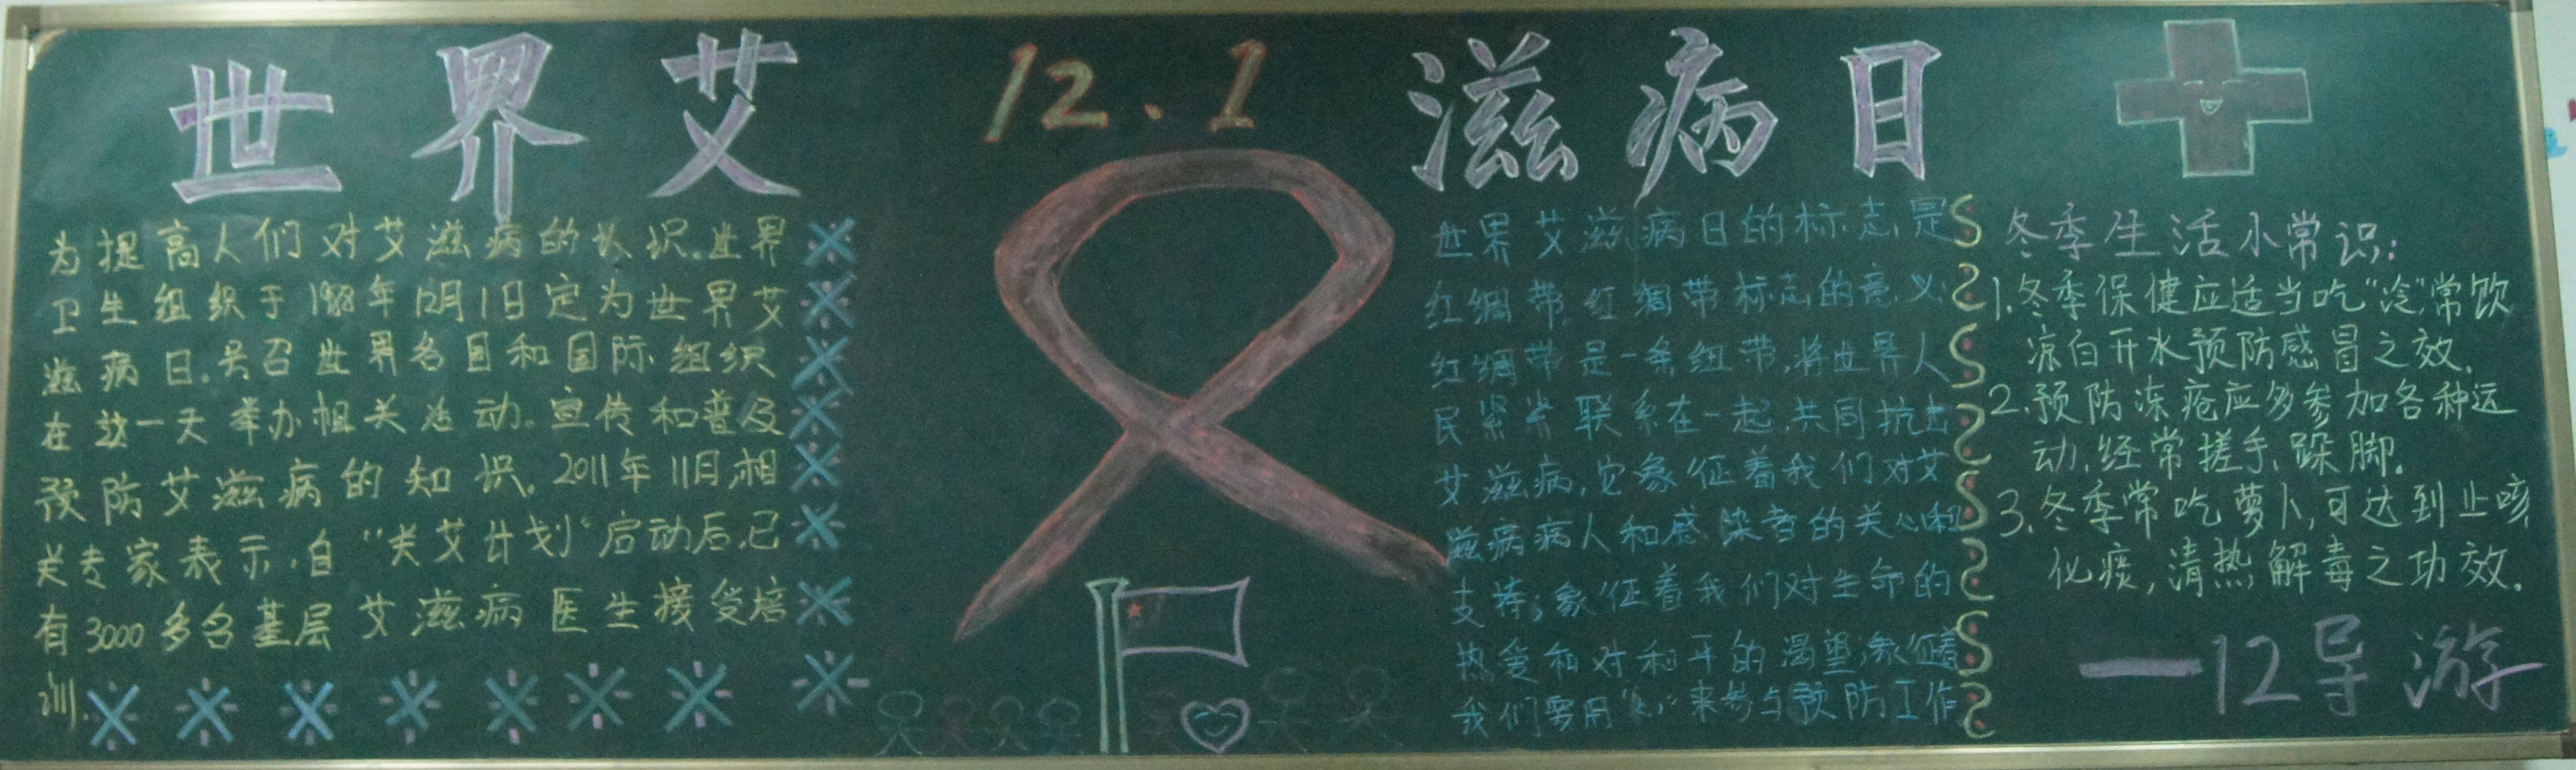 世界艾 12.1 滋病日
为提高人们对艾滋病的认识.世界
卫生组织于1988年12月1日定为世界艾
滋病日.号召世界各国和国际组织
在这一天举办相关活动.宣传和普及
预防艾滋病的知识.2011年11月相
关专家表示,自“关艾计划”启动后,已
有3000多名基层艾滋病医生接受培
训.
世界艾滋病日的标志是
红绸带.红绸带标志的意义:
红绸带是一条纽带,将世界人
民紧紧联系在一起,共同抗击
艾滋病,它象征着我们对艾
滋病病人和感染者的关心和
支持;象征着我们对生命的
热爱和对和平的渴望;象征着
我们要用“心”来参与预防工作
冬季生活小常识:
1.冬季保健应适当吃“冷”,常饮
凉白开水预防感冒之效.
2.预防冻疮应多参加各种运
动,经常搓手,跺脚.
3.冬季常吃萝卜,可达到止咳
化痰,清热解毒之功效.
—12导游